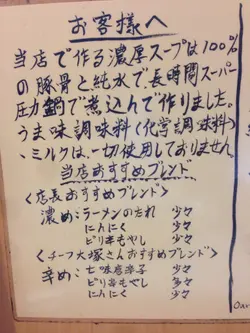 お客様へ
当店で作る濃厚スープは100%
の豚骨と純水で、長時間スーパー
圧力鍋で煮込んで作りました。
うま味調味料(化学調味料)
、ミルクは、一切使用しておりません。
当店おすすめブレンド
〈店長おすすめブレンド〉
濃いめ:ラーメンのたれ 少々
にんにく 少々
ピリ辛もやし 少々
〈チーフ大塚さんおすすめブレンド〉
辛め:七味唐辛子 多々
ピリ辛もやし 多々
にんにく 少々